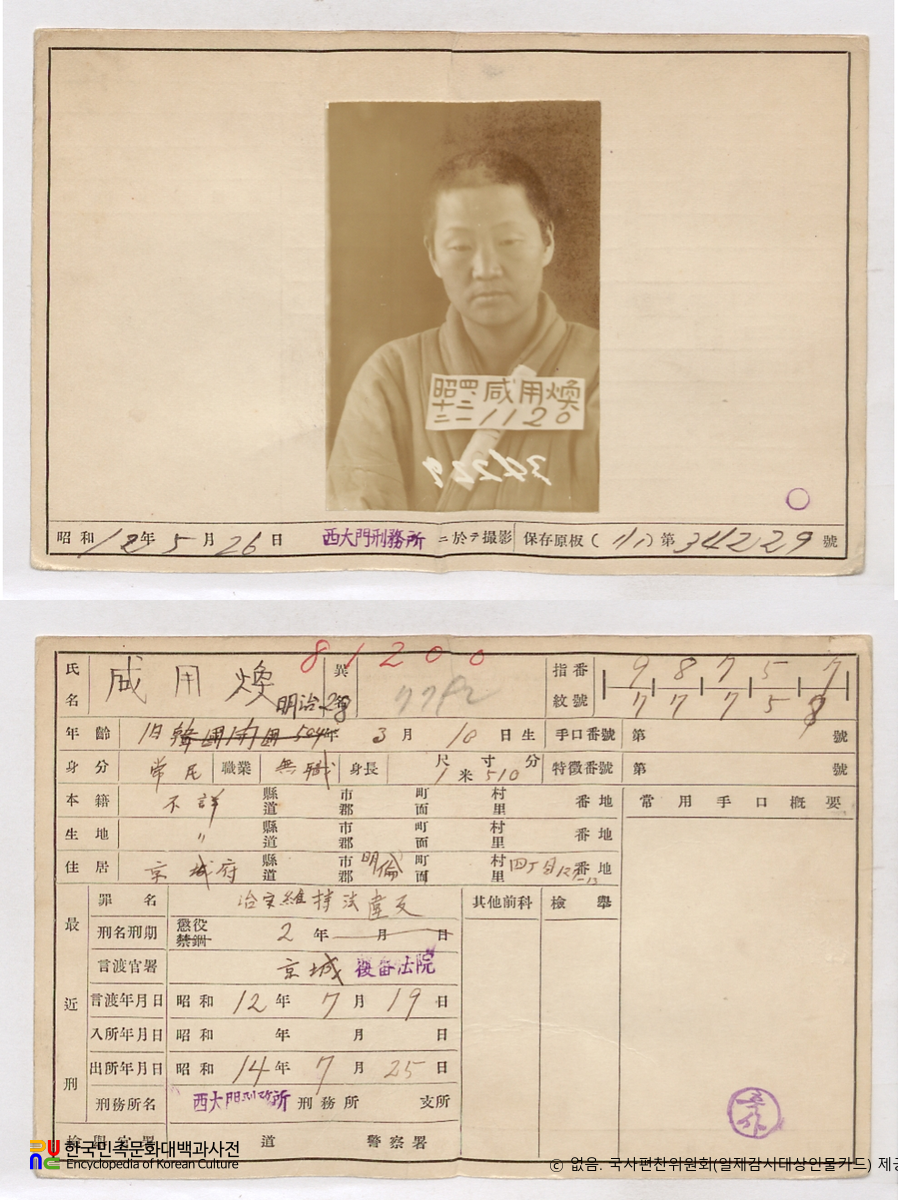 昭十二 四、二二 咸用煥
1120
34229
昭和 12年 5月 26日 西大門刑務所 ニ於テ撮影 保存原板( ) 第 342229 號
81200
氏名 咸用煥 異 指紋番號 9 8 7 5 7
7 7 7 5 8
明治28
年齡 旧韓國開國504年 3月 10日生 手口番號 第 號
身分 常民 職業 無職 身長 尺寸分 1米510 特徵番號 第 號
本籍 不詳 縣道 市郡 町面 村里 番地 常用手口槪要
生地 〃 縣道 市郡 町面 村里 番地
住居 京城府 縣道 市郡 明倫 町面 村里 四丁目 番地
最近刑
罪名 治安維持法違反 其他前科 檢擧
刑名刑期 懲役 禁錮 2年 月 日
言渡官署 京城覆審法院
言渡年月日 昭和 12年 7月 19日
入所年月日 昭和 年 月 日
出所年月日 昭和 14年 7月 25日
刑務所名 西大門刑務所 刑務所 支所
道 警察署
한국민족문화대백과사전
Encyclopedia of Korean Culture
© 없음. 국사편찬위원회(일제감시대상인물카드) 제공